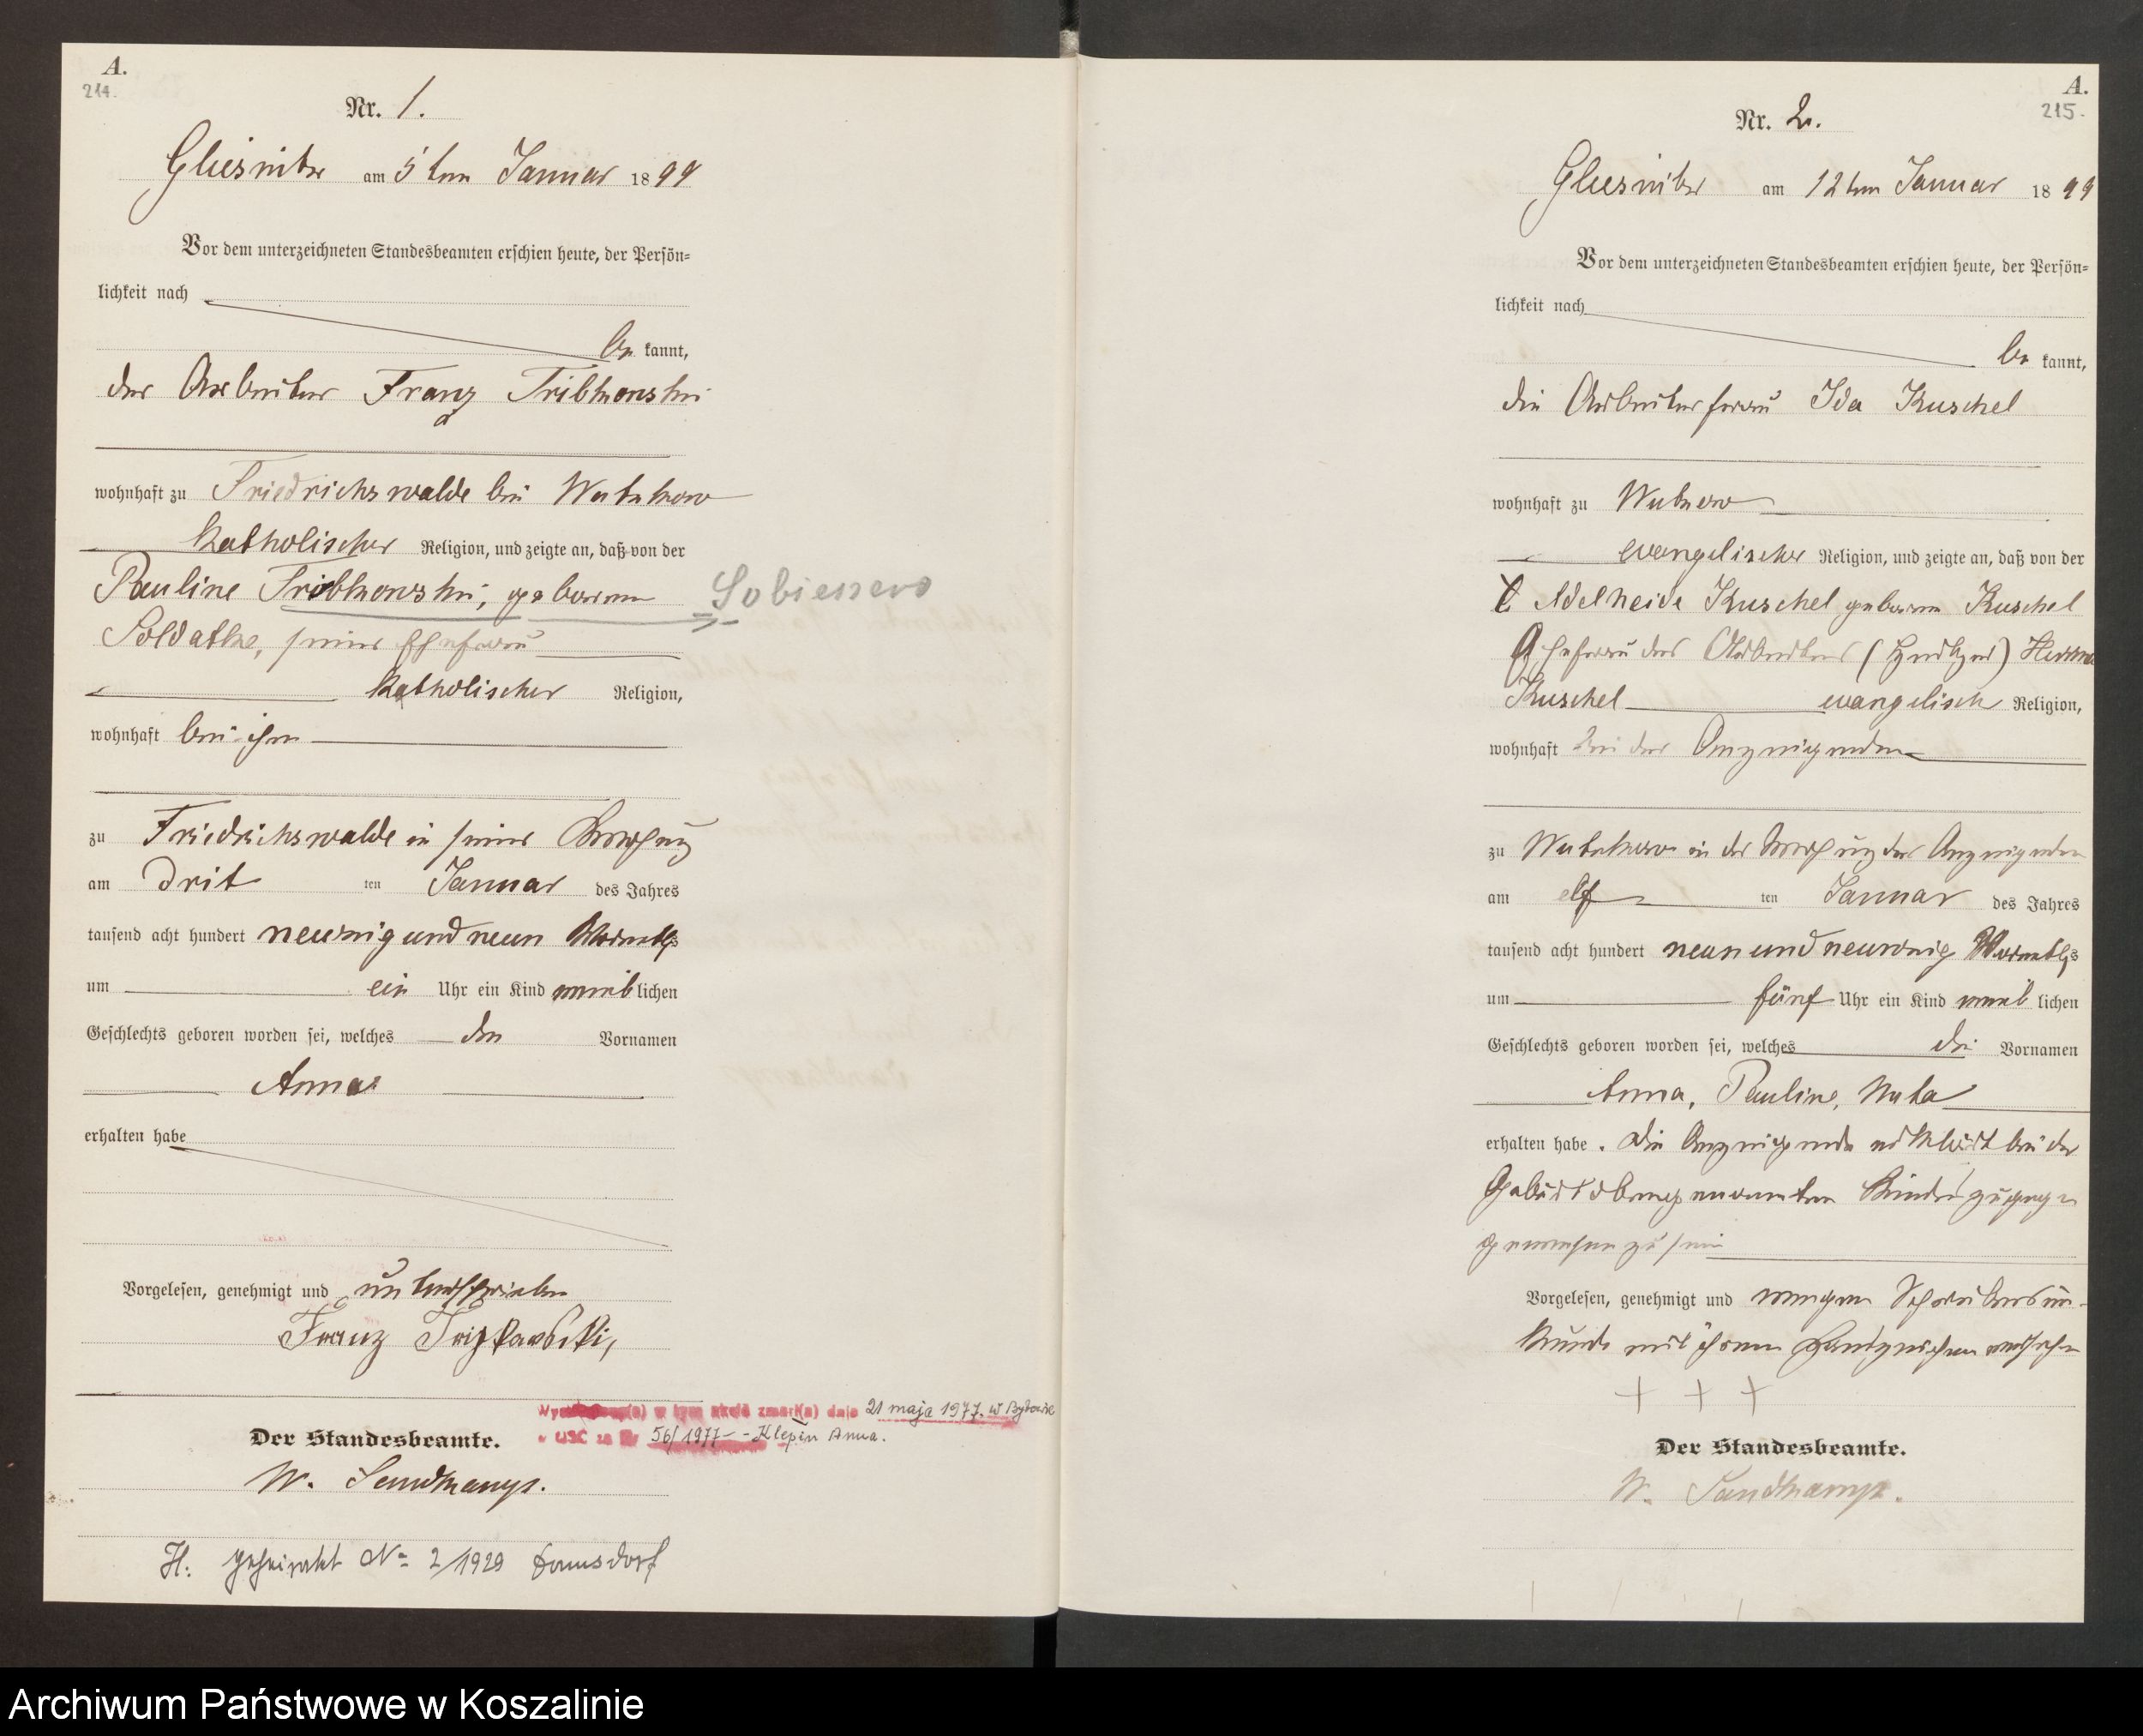 A.
214.
Nr. 1.
Gliesnitz am 5 ten Januar 1899
Vor dem unterzeichneten Standesbeamten erschien heute, der Persön-
lichkeit nach
be kannt,
der Arbeiter Franz
wohnhaft zu Friedrichswalde bei
katholischer Religion, und zeigte an, daß von der
Pauline geborene
seiner Ehefrau
katholischer Religion,
wohnhaft bei ihm
zu Friedrichswalde in seiner Wohnung
am drit ten Januar des Jahres
tausend acht hundert neunzig und neun Vormittags
um ein Uhr ein Kind weiblichen
Geschlechts geboren worden sei, welches den Vornamen
Anna
erhalten habe
Vorgelesen, genehmigt und unterschrieben
Franz
21 maja 1977. w Bytowie
56/1977 - Klepin Anna.
Der Standesbeamte.
W. Sandkamp.
H. geheiratet No 2/1929 Damsdorf
A.
215.
Nr. 2.
Gliesnitz am 12 ten Januar 1899
Vor dem unterzeichneten Standesbeamten erschien heute, der Persön-
lichkeit nach
be kannt,
die Arbeiterfrau Ida Kuschel
wohnhaft zu
evangelischer Religion, und zeigte an, daß von der
Adelheide Kuschel geborene Kuschel
Ehefrau des Arbeiters
Kuschel evangelisch Religion,
wohnhaft bei der Anzeigenden
zu in der Wohnung der Anzeigenden
am elf ten Januar des Jahres
tausend acht hundert neun und neunzig Vormittags
um fünf Uhr ein Kind weib lichen
Geschlechts geboren worden sei, welches die Vornamen
Anna, Pauline, Meta
erhalten habe. Die Anzeigende erklärt bei der
Geburt obengenannten Kindes zugegen
gewesen zu sein
Vorgelesen, genehmigt und wegen Schreibensun-
kunde mit ihrem Handzeichen versehen
+ + +
Der Standesbeamte.
W. Sandkamp.
Archiwum Państwowe w Koszalinie